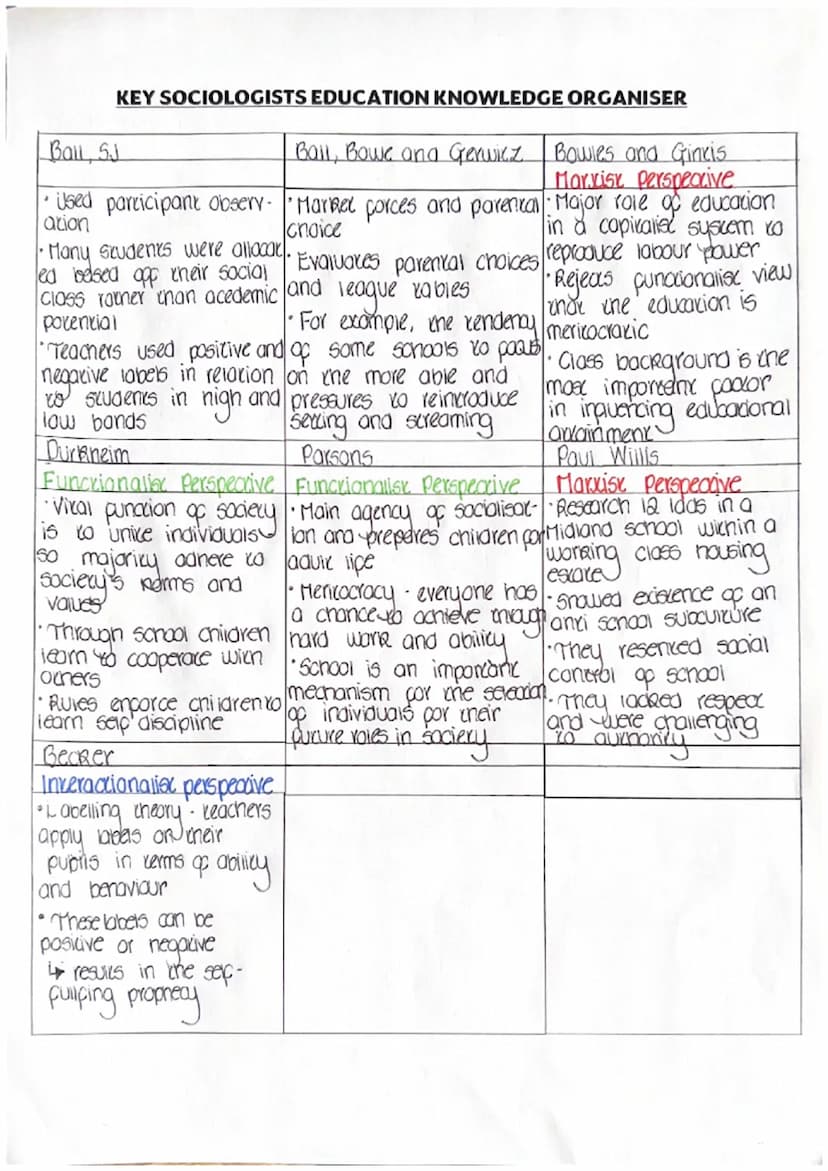 KEY SOCIOLOGISTS EDUCATION KNOWLEDGE ORGANISER
Ball, SJ
• Used participant observ-
ation
• Many students were allocat
ed based off their social
class rather than acedemic
potential
• Teachers used positive and
negative labels in relation
to students in high and
low bands
Ball, Bowe and Gerwicz
• Market forces and parental
choice
• Evaluates parental choices
and league tables
• For example, the tendency
of some schools to focus
on the more able and
pressures to reintroduce
setting and screaming
Bowles and Gintis
Marxist Perspective
• Major role of education
in a capitalist system to
reproduce labour power
• Rejects functionalist view
that the education is
meritocratic
• Class background is the
most important factor
in influencing educational
attainment
Durkheim
Functionalist Perspective
• Vital function of society
is to unite individuals
so majority adhere to
society's norms and
values
• Through school children
learn to cooperate with
others
• Rules enforce children to
learn self discipline
Parsons
Functionalist Perspective
• Main agency of socialisat-
ion and prepares children for
adult life
• Meritocracy - everyone has
a chance to achieve through
hard work and ability
• School is an important
mechanism for the selection
of individuals for their
future roles in society
Paul Willis
Marxist Perspective
• Research 12 lads in a
Midland school within a
working class housing
estate
• Showed existence of an
anti school subculture
• They resented social
control of school
• They lacked respect
and were challenging
to authority
Becker
Interactionalist perspective
• Labelling theory - teachers
apply labels on their
pupils in terms of ability
and behaviour
• These labels can be
positive or negative
↳ results in the self-
fulfling prophecy